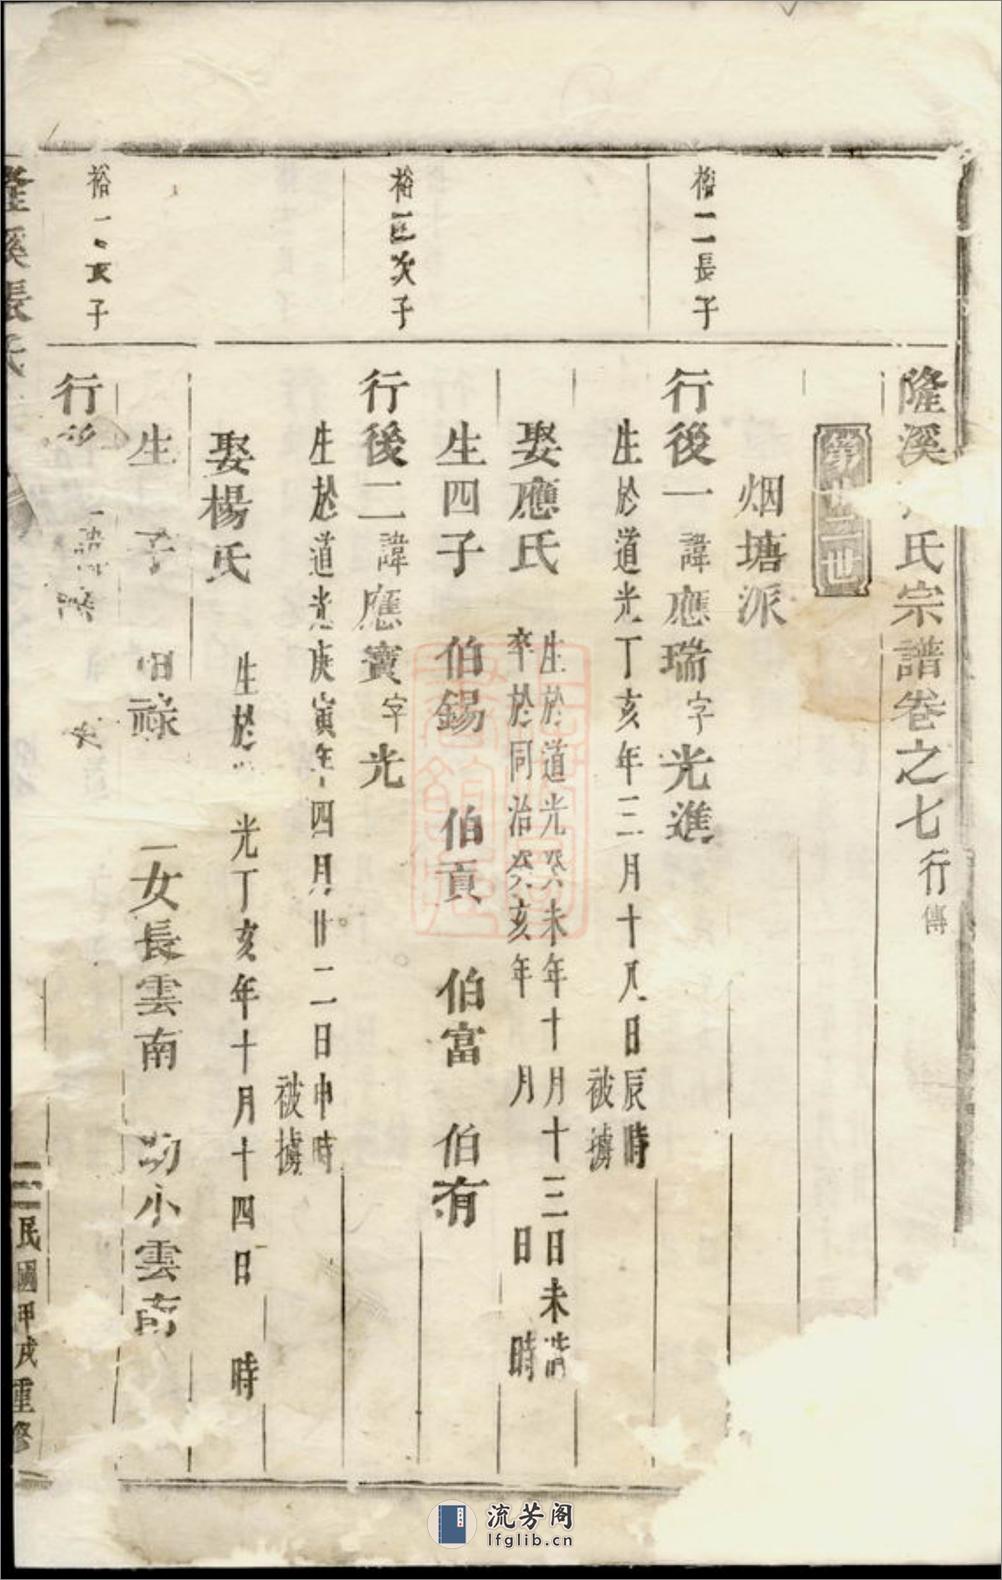 隆溪 氏宗譜卷之七行傳
第 世
烟塘派
長子
行後一諱應瑞字光進
生於道光丁亥年三月十八日辰時
被擄
娶應氏
生於道光癸未年十月十三日未時
卒於同治癸亥年 月 日 時
生四子 伯錫 伯貢 伯富 伯有
裕 次子
行後二諱應寶字光
生於道光庚寅年四月廿二日申時
被擄
娶楊氏
生於 光丁亥年十月十四日 時
生 子 祿 女長雲南 幼小雲南
裕 子
行
隆溪張氏
民國甲戌重修
流芳阁
lfglib.cn